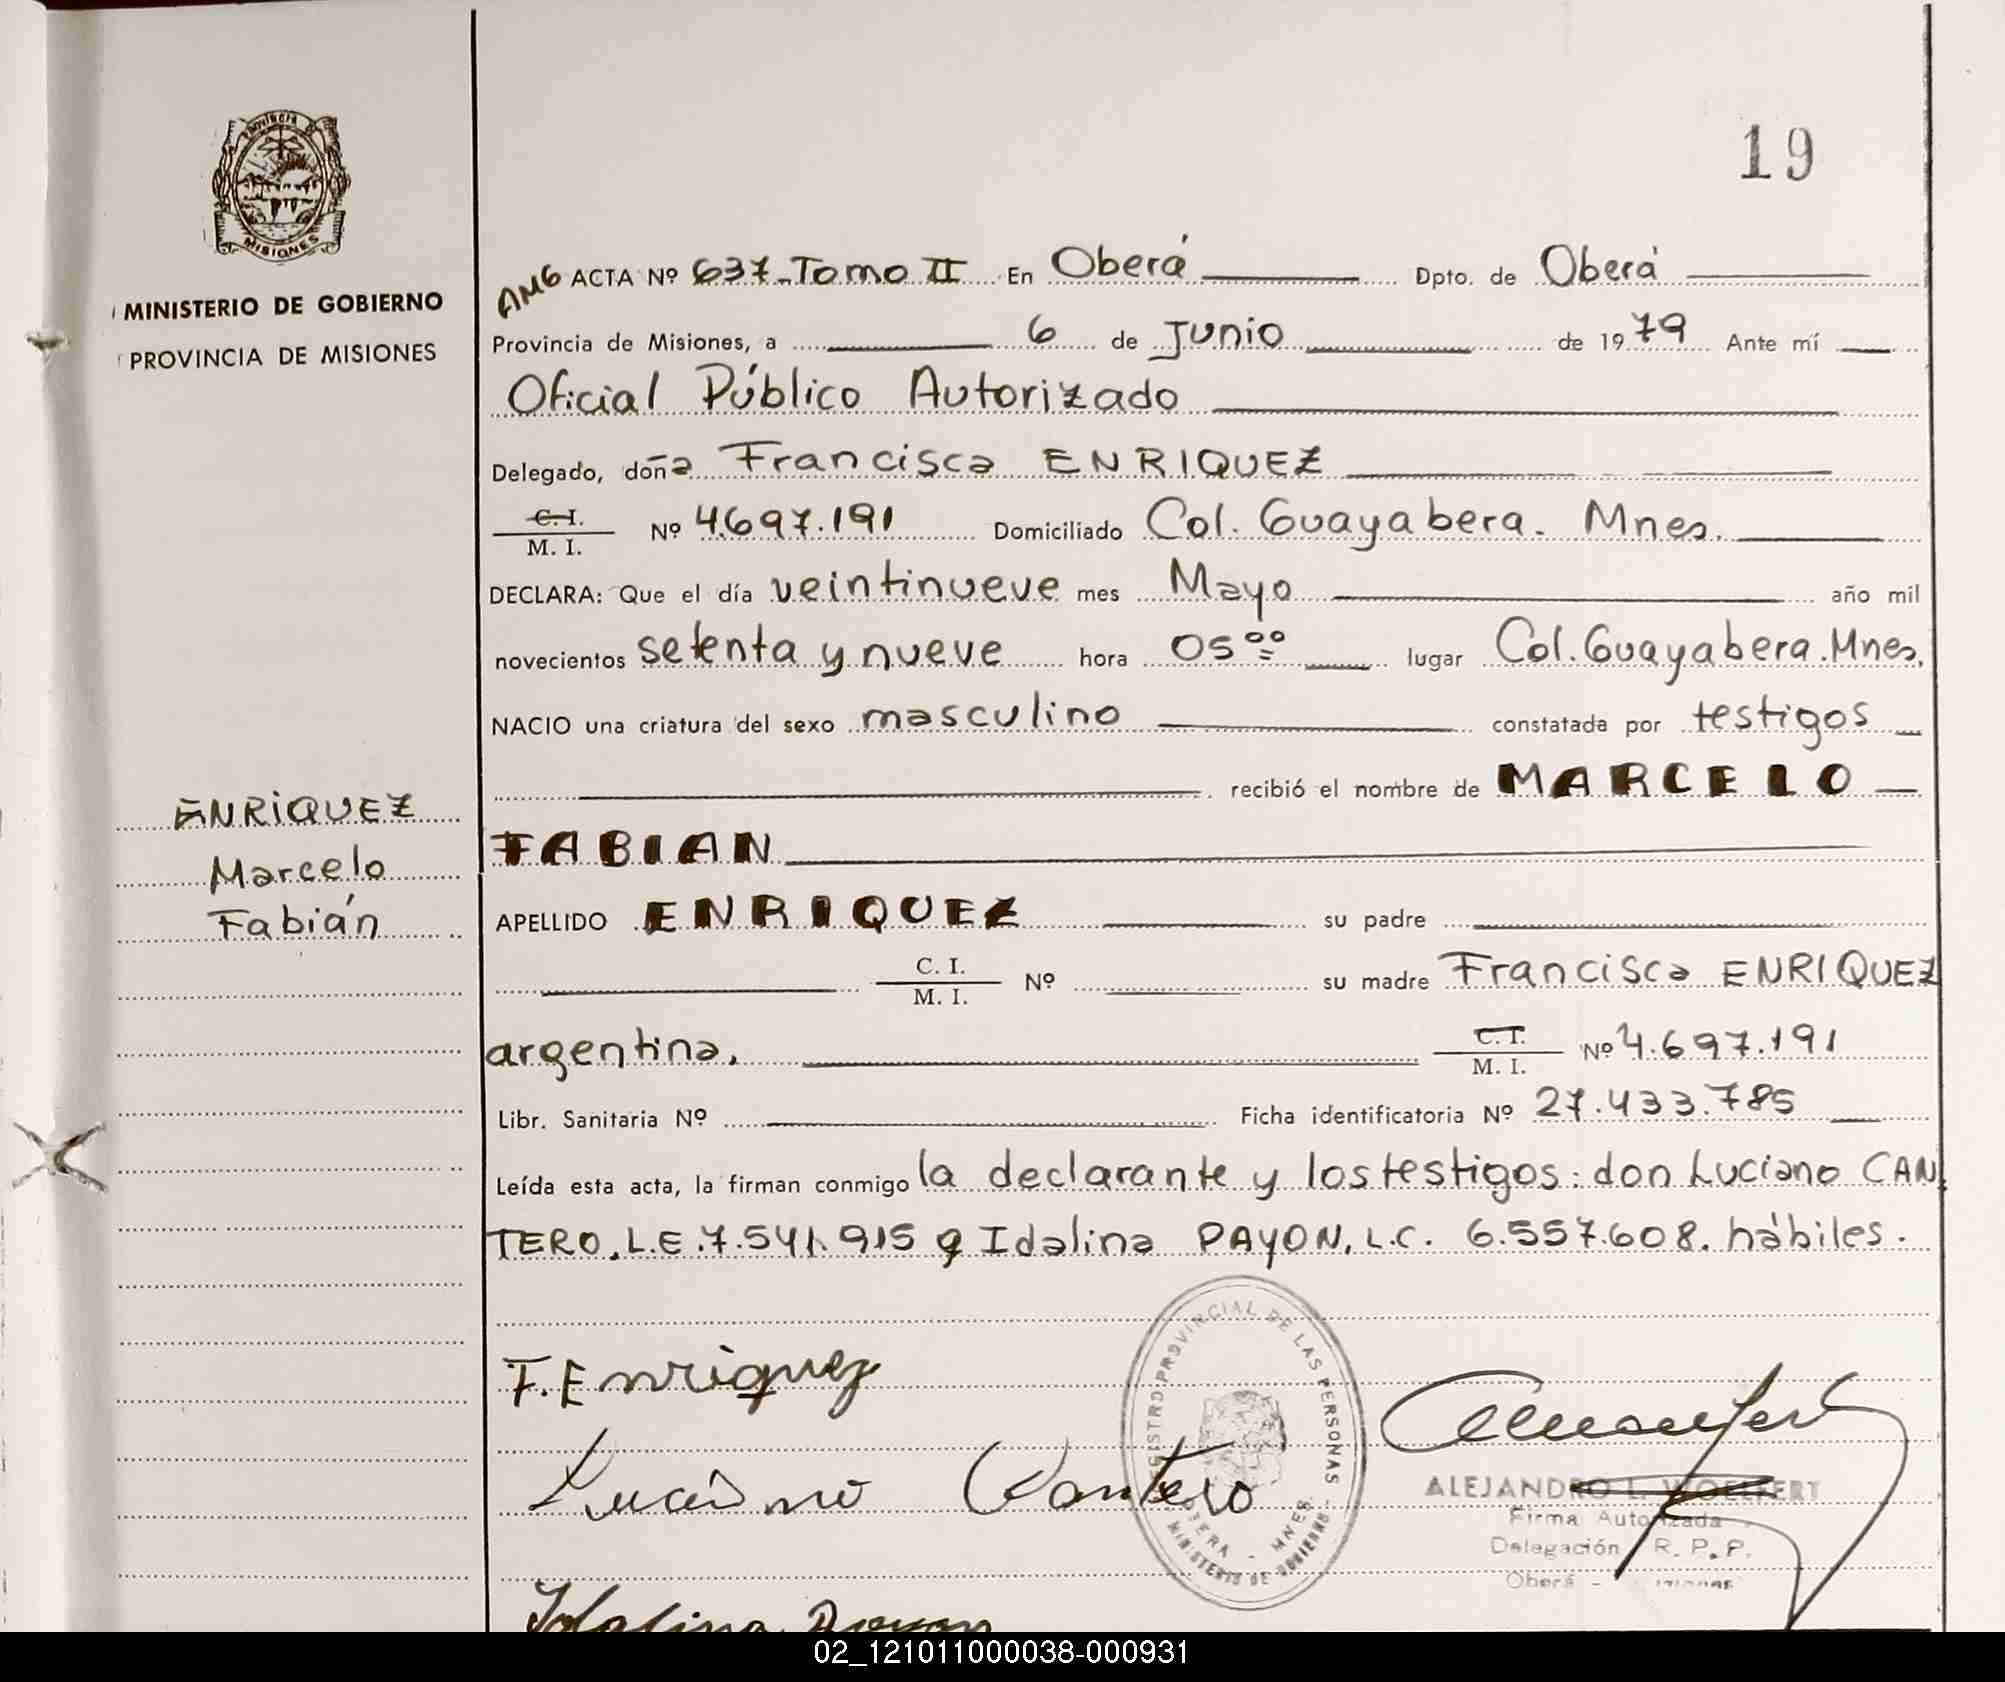 19
PROVINCIA DE
MISIONES
MINISTERIO DE GOBIERNO
PROVINCIA DE MISIONES
ENRIQUEZ
Marcelo
Fabián
AMG ACTA Nº 637-Tomo II En Oberá Dpto. de Oberá
Provincia de Misiones, a 6 de Junio de 1979 Ante mí
Oficial Público Autorizado
Delegado, doña Francisca ENRIQUEZ
C. I. / M. I. Nº 4.697.191 Domiciliado Col. Guayabera. Mnes.
DECLARA: Que el día veintinueve mes Mayo año mil
novecientos setenta y nueve hora 05 00 lugar Col. Guayabera. Mnes.
NACIO una criatura del sexo masculino constatada por testigos
recibió el nombre de MARCELO
FABIAN
APELLIDO ENRIQUEZ su padre
C. I. / M. I. Nº su madre Francisca ENRIQUEZ
argentina. C. I. / M. I. Nº 4.697.191
Libr. Sanitaria Nº Ficha identificatoria Nº 27.433.785
Leída esta acta, la firman conmigo la declarante y los testigos: don Luciano CAN
TERO. L.E. 7.541.915 y Idalina PAYON. L.C. 6.557.608. hábiles.
F. Enriquez
Luciano Cantero
REGISTRO PROVINCIAL DE LAS PERSONAS
OBERA - MNES.
MINISTERIO DE GOBIERNO
ALEJANDRO L. WOELFERT
Firma Autorizada
Delegación R. P. P.
Oberá - Misiones
Idalina Payon
02_121011000038-000931